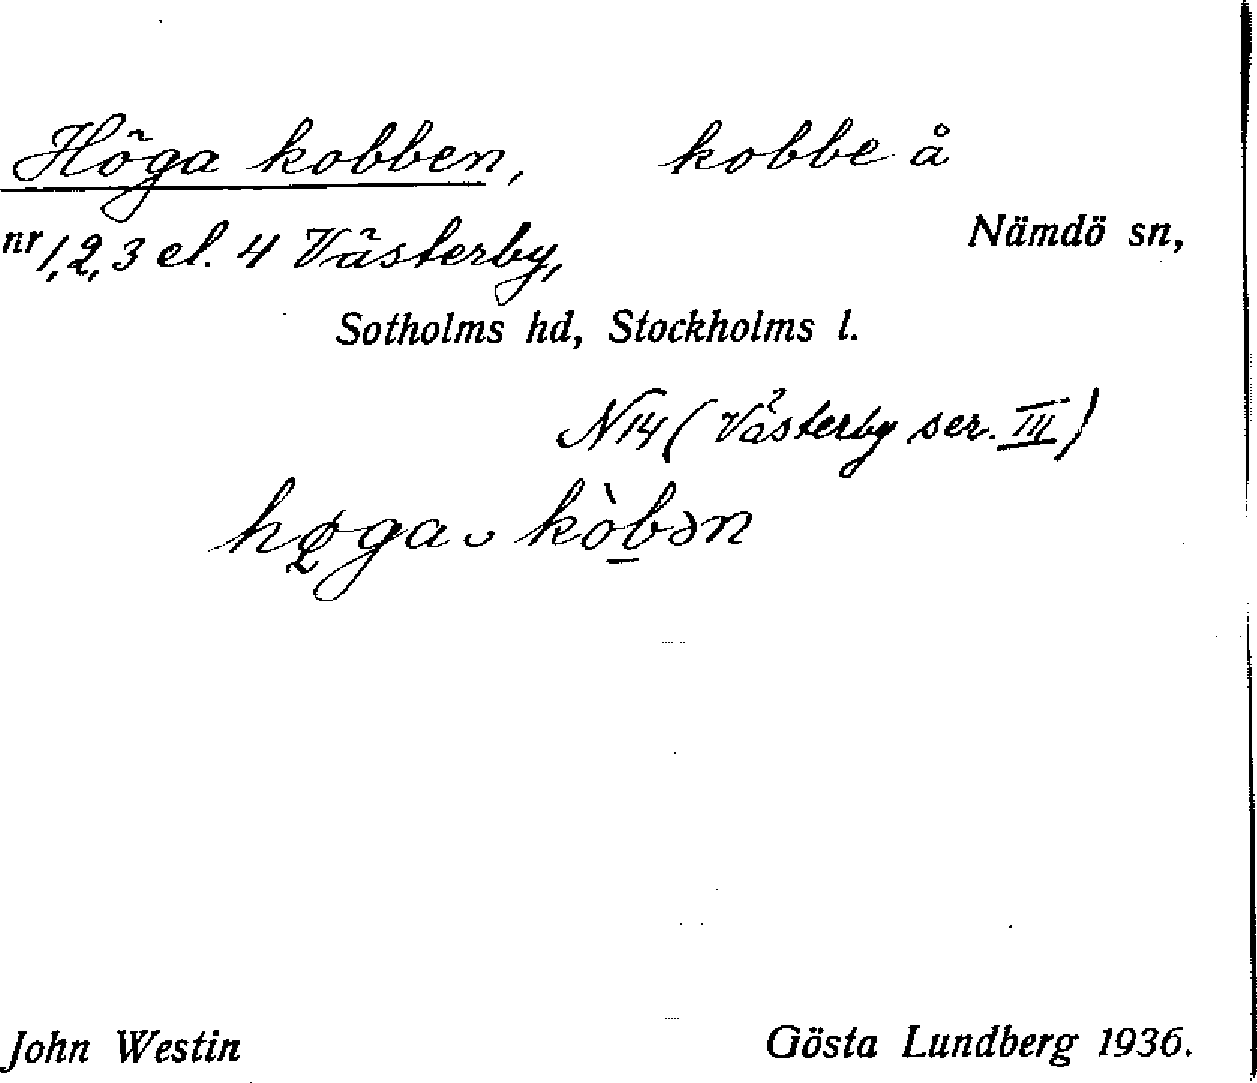 Höga kobben, kobbe å
nr 1, 2, 3 el. 4 Västerby, Nämdö sn,
Sotholms hd, Stockholms l.
N 14 (Västerby ser. III)
hø̨ga ᴗ kòb̲ən
John Westin Gösta Lundberg 1936.